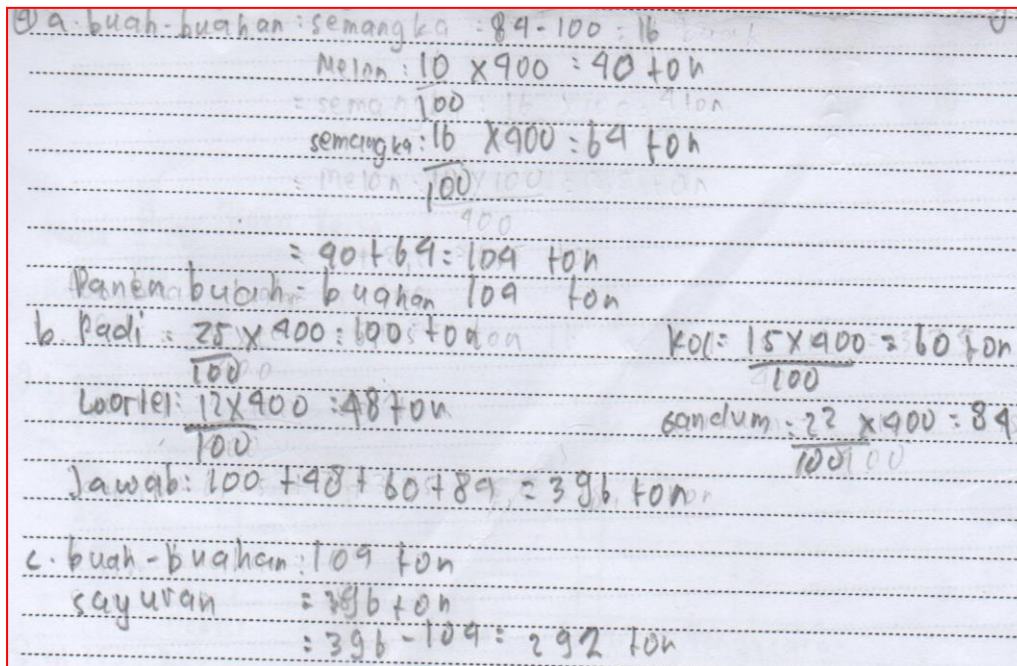 ④ a. buah-buahan : semangka : 84-100 : 16
Melon : 10/100 x 400 : 40 ton
semangka : 16/100 x 400 : 64 ton
= 40+64 = 104 ton
Panen buah-buahan 104 ton
b. Padi = 25 x 400/100 : 100 ton kol = 15 x 400/100 = 60 ton
Wortel : 12 x 400/100 : 48 ton gandum = 22 x 400/100 = 84
Jawab : 100 + 48 + 60 + 84 = 396 ton
c. buah-buahan : 104 ton
sayuran = 396 ton
= 396 - 104 = 292 ton